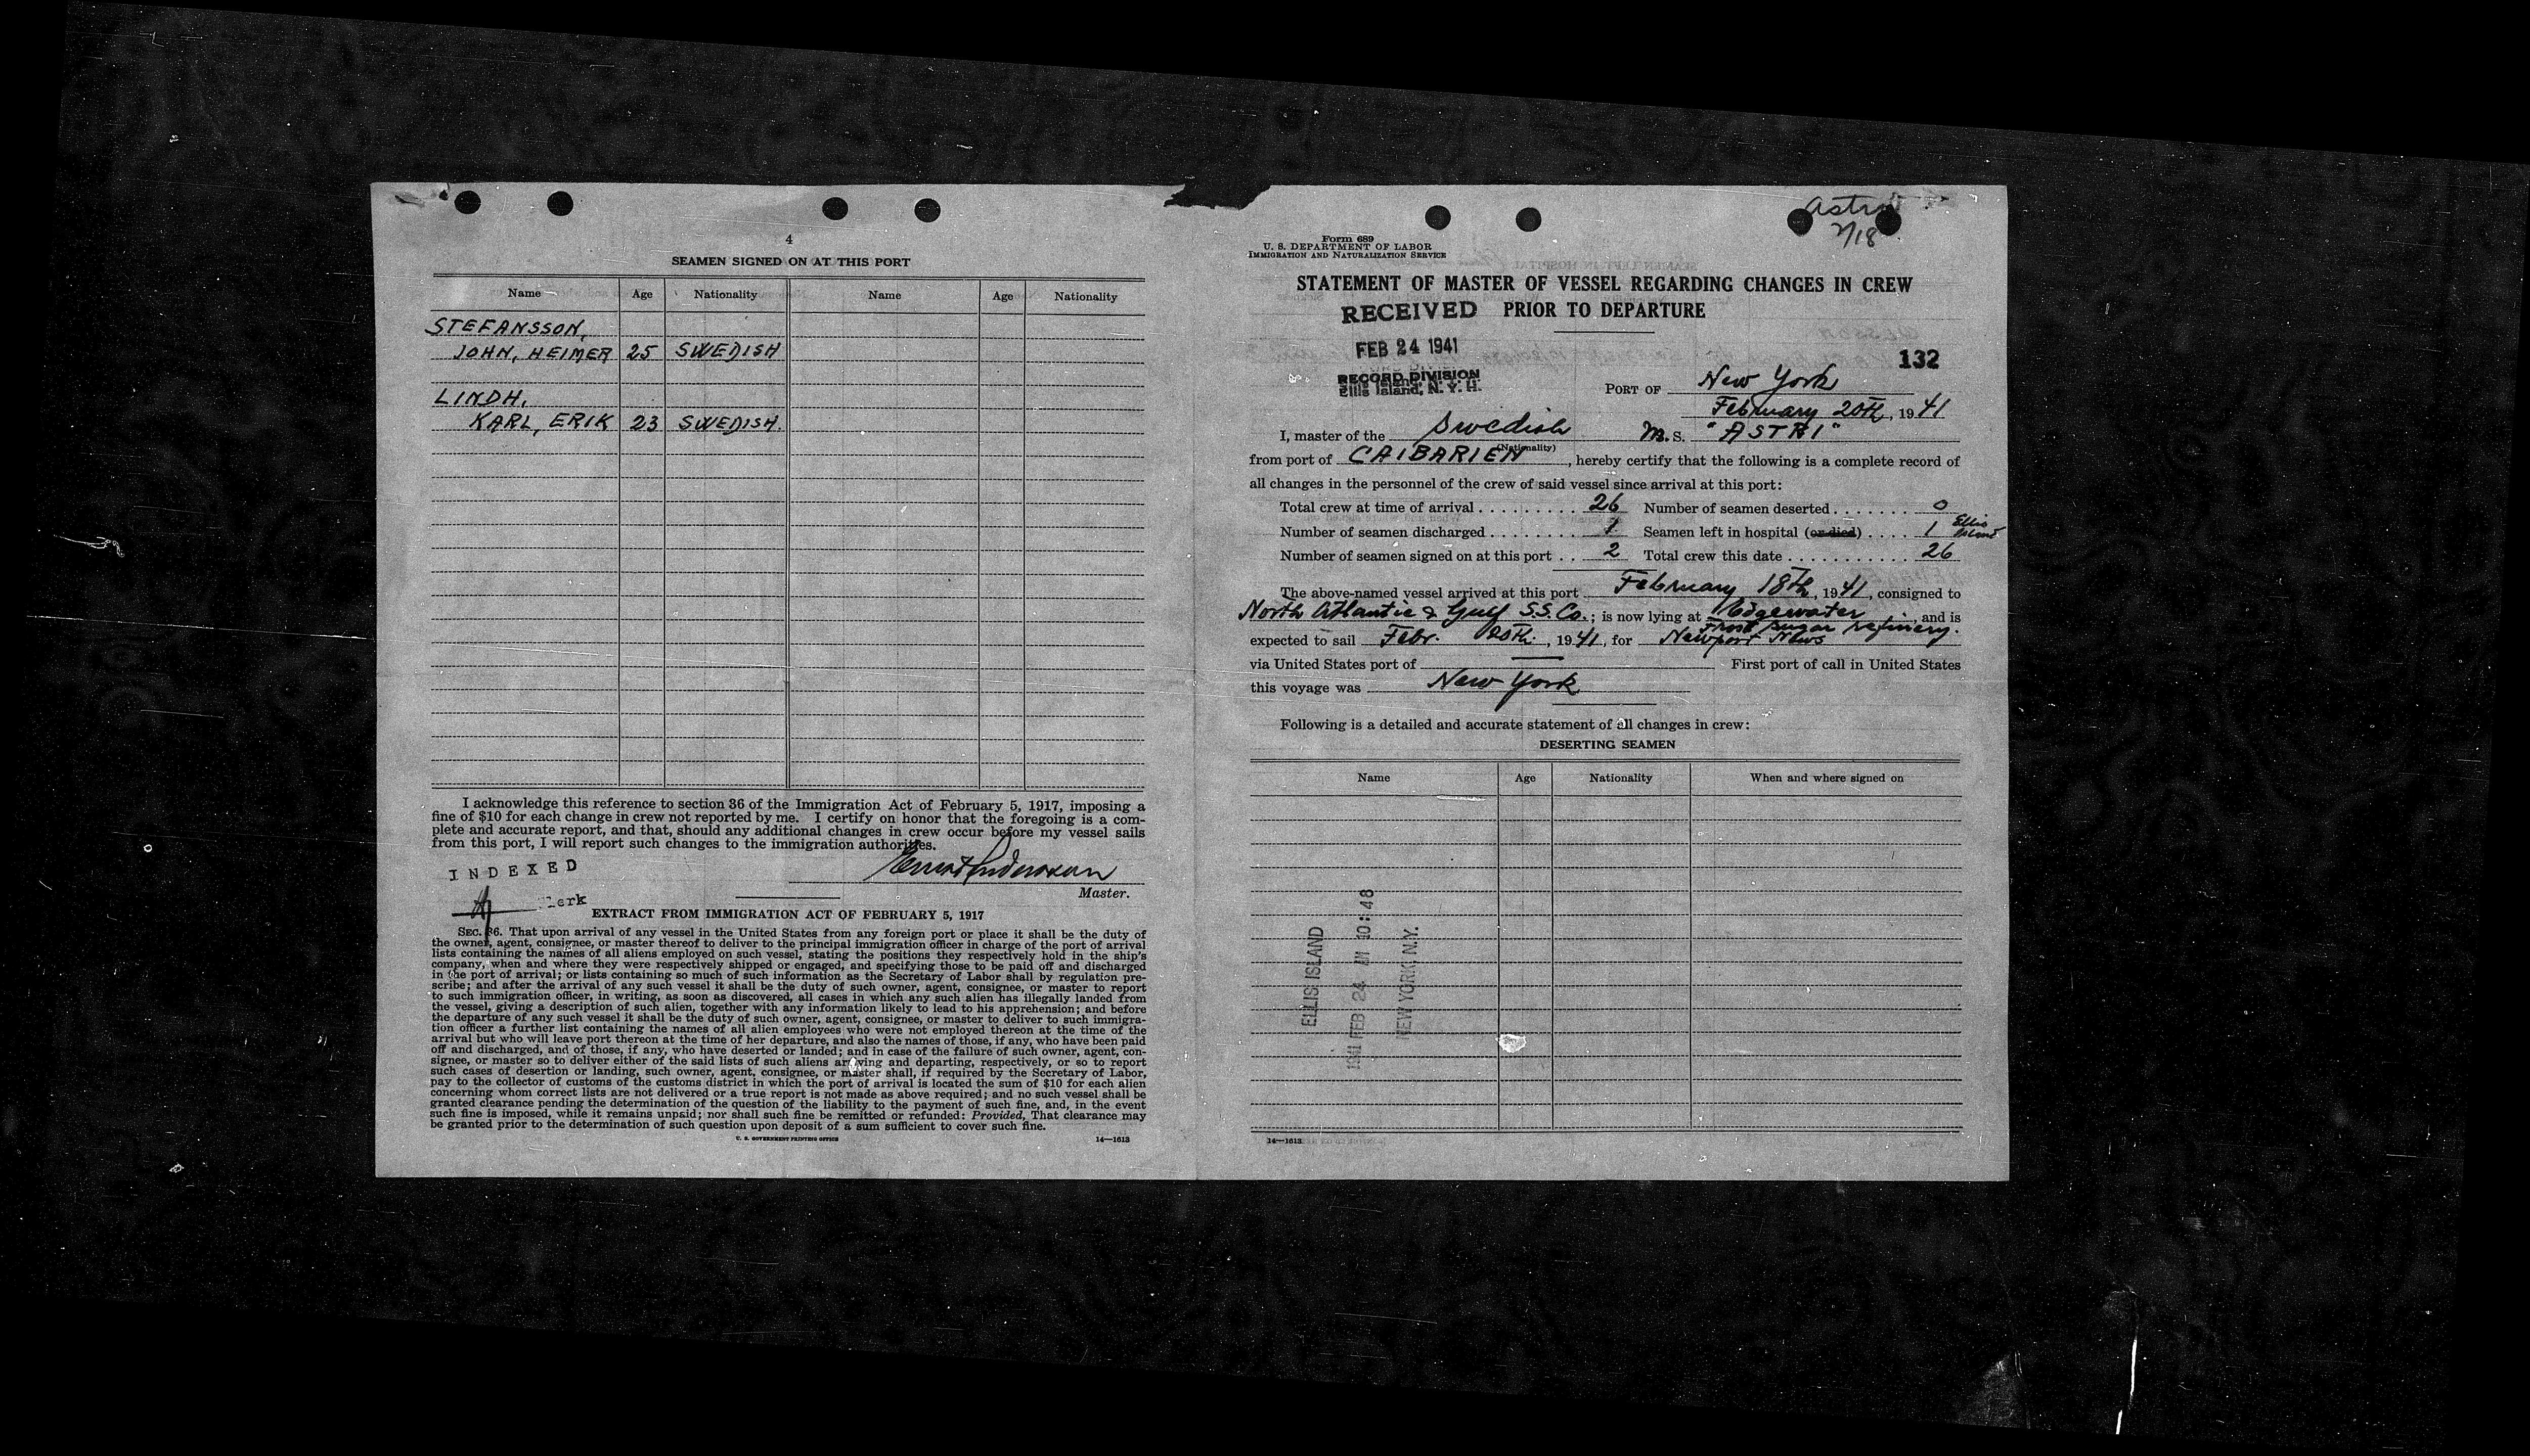 4
SEAMEN SIGNED ON AT THIS PORT
Name Age Nationality Name Age Nationality
STEFANSSON,
JOHN, HEIMER 25 SWEDISH
LINDH,
KARL, ERIK 23 SWEDISH.
I acknowledge this reference to section 36 of the Immigration Act of February 5, 1917, imposing a
fine of $10 for each change in crew not reported by me. I certify on honor that the foregoing is a com-
plete and accurate report, and that, should any additional changes in crew occur before my vessel sails
from this port, I will report such changes to the immigration authorities.
INDEXED
Master.
lerk
EXTRACT FROM IMMIGRATION ACT OF FEBRUARY 5, 1917
SEC. 36. That upon arrival of any vessel in the United States from any foreign port or place it shall be the duty of
the owner, agent, consignee, or master thereof to deliver to the principal immigration officer in charge of the port of arrival
lists containing the names of all aliens employed on such vessel, stating the positions they respectively hold in the ship's
company, when and where they were respectively shipped or engaged, and specifying those to be paid off and discharged
in the port of arrival; or lists containing so much of such information as the Secretary of Labor shall by regulation pre-
scribe; and after the arrival of any such vessel it shall be the duty of such owner, agent, consignee, or master to report
to such immigration officer, in writing, as soon as discovered, all cases in which any such alien has illegally landed from
the vessel, giving a description of such alien, together with any information likely to lead to his apprehension; and before
the departure of any such vessel it shall be the duty of such owner, agent, consignee, or master to deliver to such immigra-
tion officer a further list containing the names of all alien employees who were not employed thereon at the time of the
arrival but who will leave port thereon at the time of her departure, and also the names of those, if any, who have been paid
off and discharged, and of those, if any, who have deserted or landed; and in case of the failure of such owner, agent, con-
signee, or master so to deliver either of the said lists of such aliens arriving and departing, respectively, or so to report
such cases of desertion or landing, such owner, agent, consignee, or master shall, if required by the Secretary of Labor,
pay to the collector of customs of the customs district in which the port of arrival is located the sum of $10 for each alien
concerning whom correct lists are not delivered or a true report is not made as above required; and no such vessel shall be
granted clearance pending the determination of the question of the liability to the payment of such fine, and, in the event
such fine is imposed, while it remains unpaid; nor shall such fine be remitted or refunded: Provided, That clearance may
be granted prior to the determination of such question upon deposit of a sum sufficient to cover such fine.
U. S. GOVERNMENT PRINTING OFFICE 14—1613
Astri
2/18
Form 689
U. S. DEPARTMENT OF LABOR
IMMIGRATION AND NATURALIZATION SERVICE
STATEMENT OF MASTER OF VESSEL REGARDING CHANGES IN CREW
RECEIVED PRIOR TO DEPARTURE
FEB 24 1941
132
RECORD DIVISION
Ellis Island, N. Y. H.
PORT OF New York
February 20th, 1941
I, master of the Swedish M.S. "ASTRI"
(Nationality)
from port of CAIBARIEN, hereby certify that the following is a complete record of
all changes in the personnel of the crew of said vessel since arrival at this port:
Total crew at time of arrival . . . . . . . . . 26 Number of seamen deserted . . . . . . . 0
Number of seamen discharged . . . . . . . . 1 Seamen left in hospital (or died) . . . . 1 Ellis Island
Number of seamen signed on at this port . . 2 Total crew this date . . . . . . . . . . . 26
The above-named vessel arrived at this port February 18th, 1941, consigned to
North Atlantic & Gulf S.S. Co.; is now lying at Edgewater, and is
sugar refinery.
expected to sail Febr. 20th, 1941, for Newport News
via United States port of First port of call in United States
this voyage was New York
Following is a detailed and accurate statement of all changes in crew:
DESERTING SEAMEN
Name Age Nationality When and where signed on
ELLIS ISLAND
1941 FEB 24 10:48
NEW YORK, N.Y.
14—1613